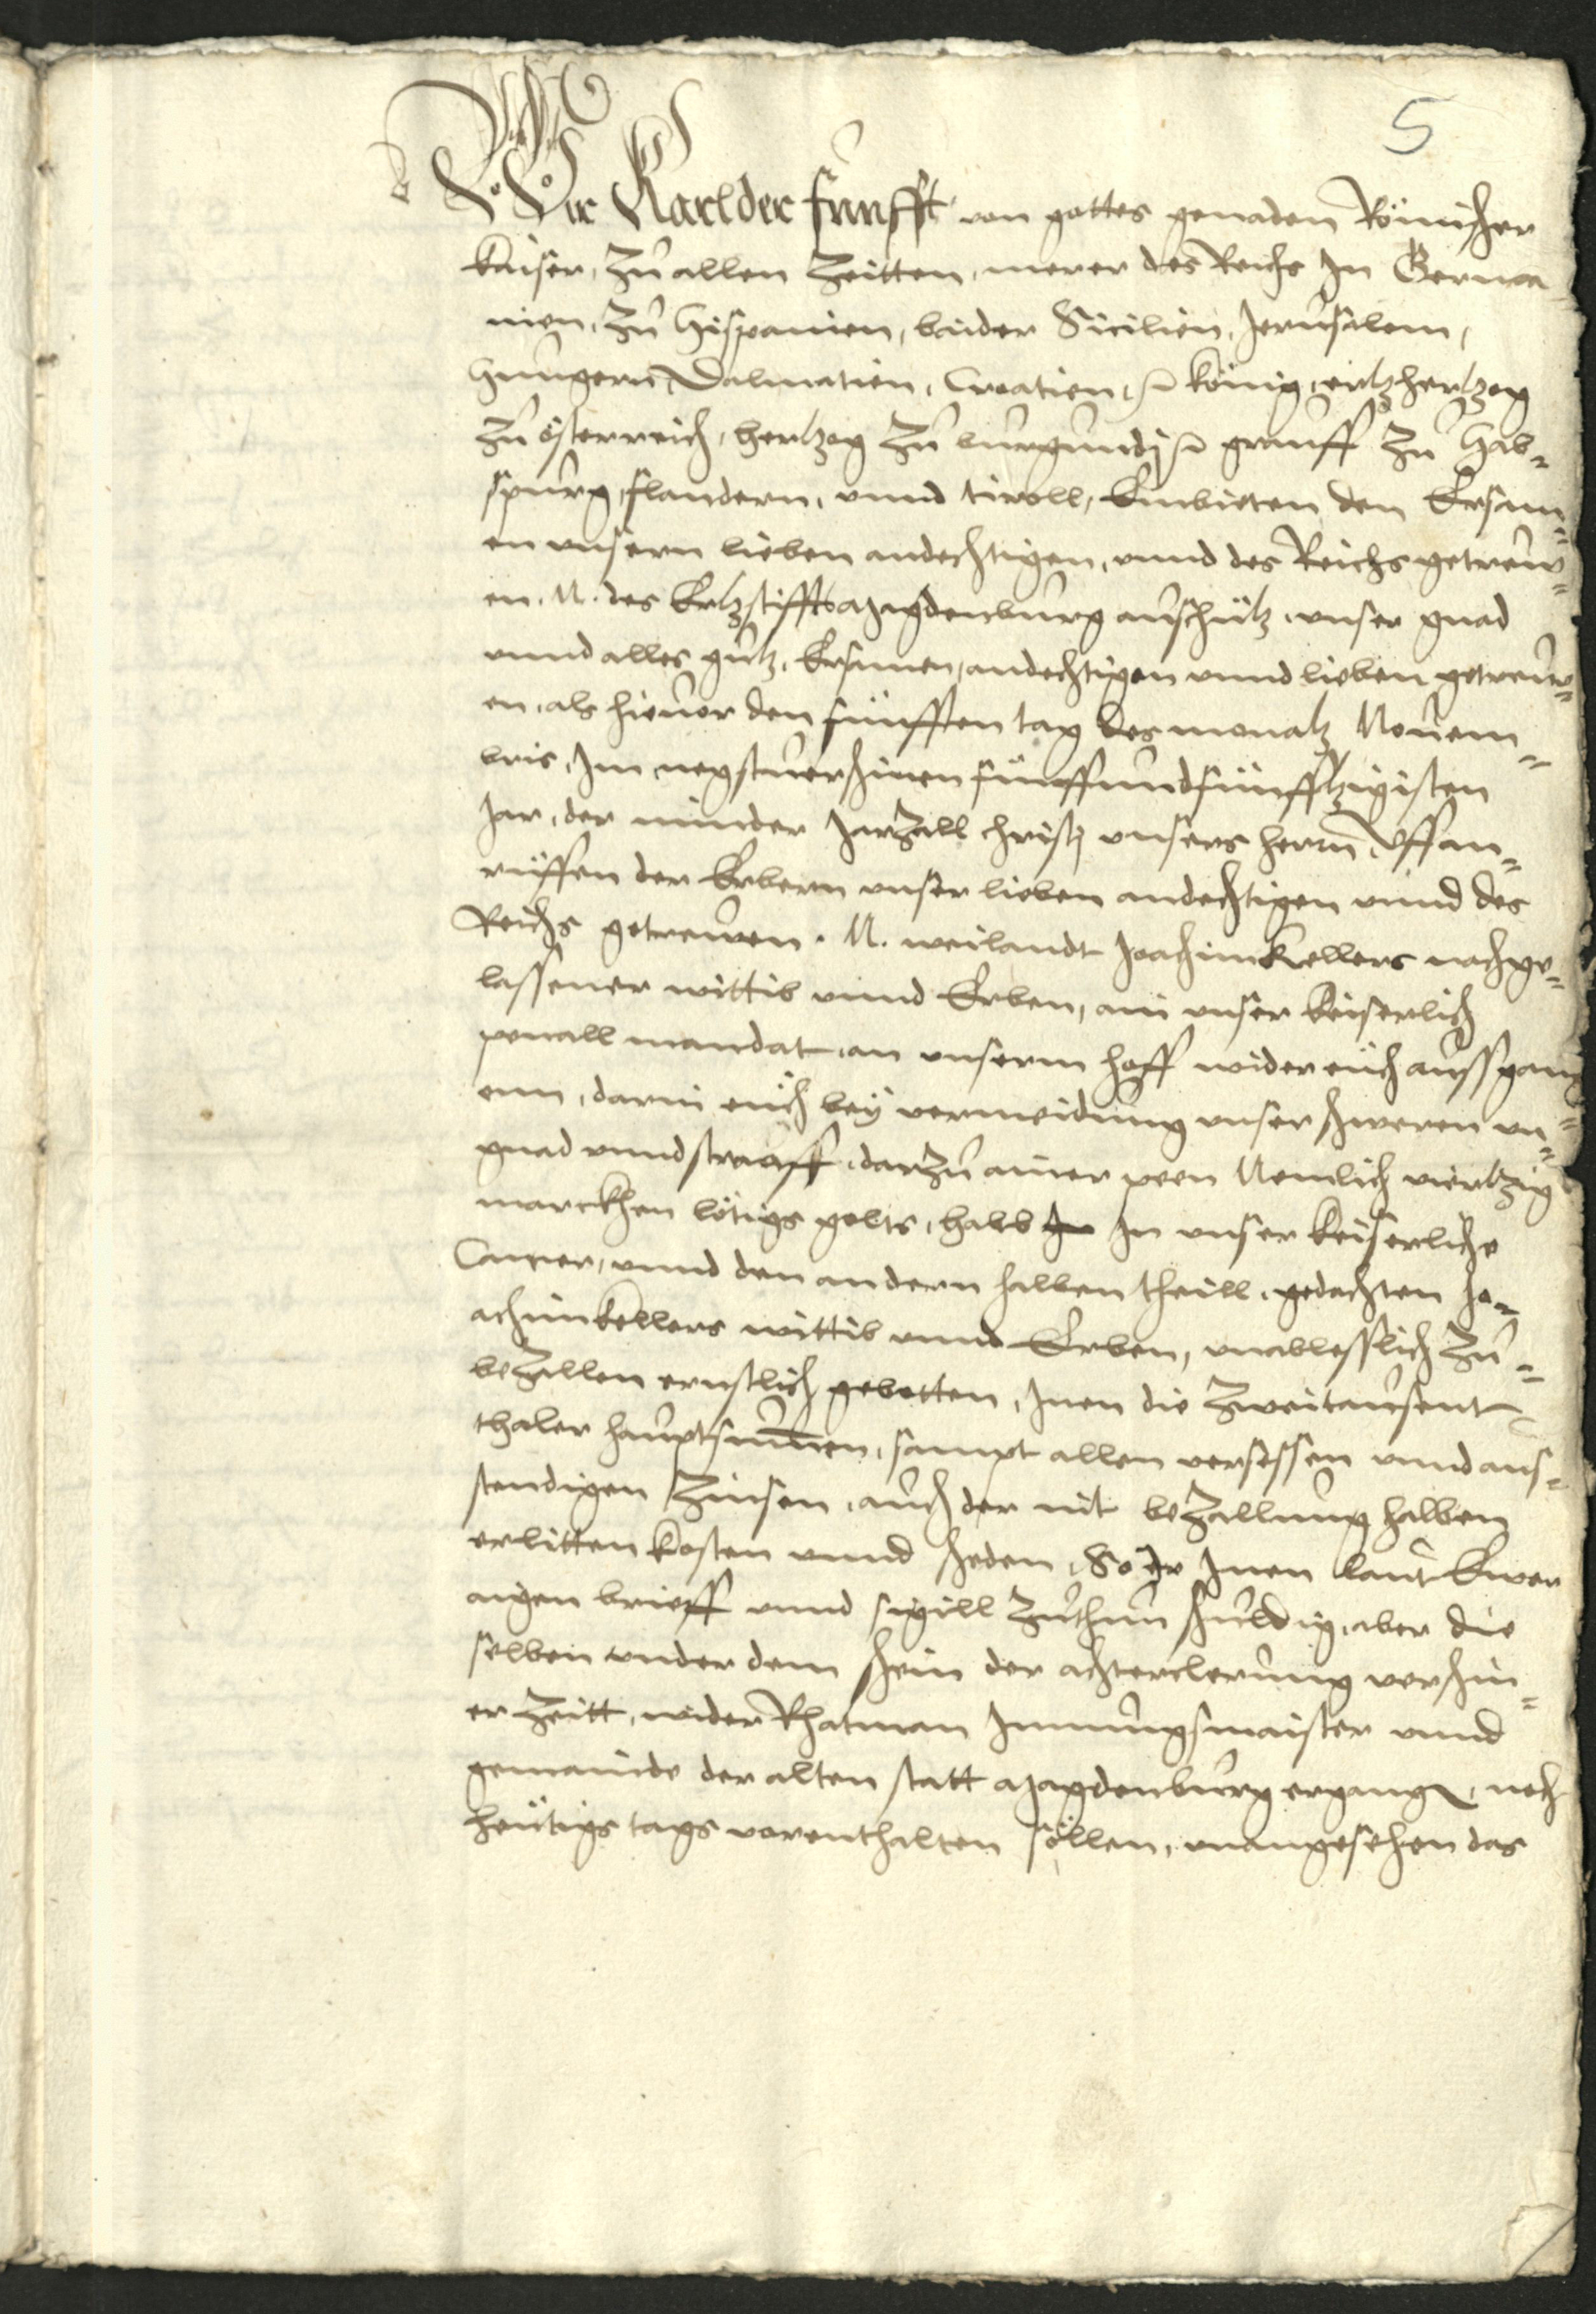 5
Wir Karl der funfft von gottes genaden Römischer
kaiser, zu allen Zeitten, merer des Reichs In Germa
nien, zu Hispanien, baider Sicilien, Jerusalem,
Hungern, Dalmatien, Croatien, König, ertzhertzog
zu österreich, hertzog zu burgundj grauff zu Hab=
spurg, flandern, unnd tiroll, Embieten den Ersam=
en unsern lieben andechtigen, unnd des Reichs getrew=
en. N. des Ertzstiffts Magdenburg auschutz, unser gnad
unnd alles gutz, Ersamen, andechtigen unnd lieben getrew=
en, als hieuor den funfften tag des monatz Nouem=
bris, Im negstuerschinen fünffundfünfftzigisten
Jar, der minder Jarzall christj unsers herrn, Uff an=
rüffen der Erbern unser lieben andechtigen unnd des
Reichs getrewen. N. weilandt Joachim Kellers nachge=
lassener wittib unnd Erben, ain unser keiserlich
penall mandat, an unserm hoff wider euch aussgang=
enn, darin euch bey vermeidung unser schweren un=
gnad unnd strauff, darzu ainer peen Nemlich viertzig
marckhen lötigs golts, halb In unser keiserliche
Camer, unnd den andern halben theill, gedachten Jo=
achim kellers wittib unnd Erben, unablesslich zu=
bezallen ernstlich gebotten, Inen die zweitausent
thaler hauptsummen, sampt allen versessen unnd aus=
stendigen Zinsen, auch der nit bezallung halben
erlitten kosten unnd scheden, So Ir Inen laut Ewer
aigen brieff unnd sigill zuthun schuldig, aber die
selben under dem schein der achterclerung verschin=
er Zeitt, wider Rhatman Innungsmaister unnd
gemainde der alten statt Magdenburg ergangen, noch
heutigs tags vorenthalten söllen, unangesehen das